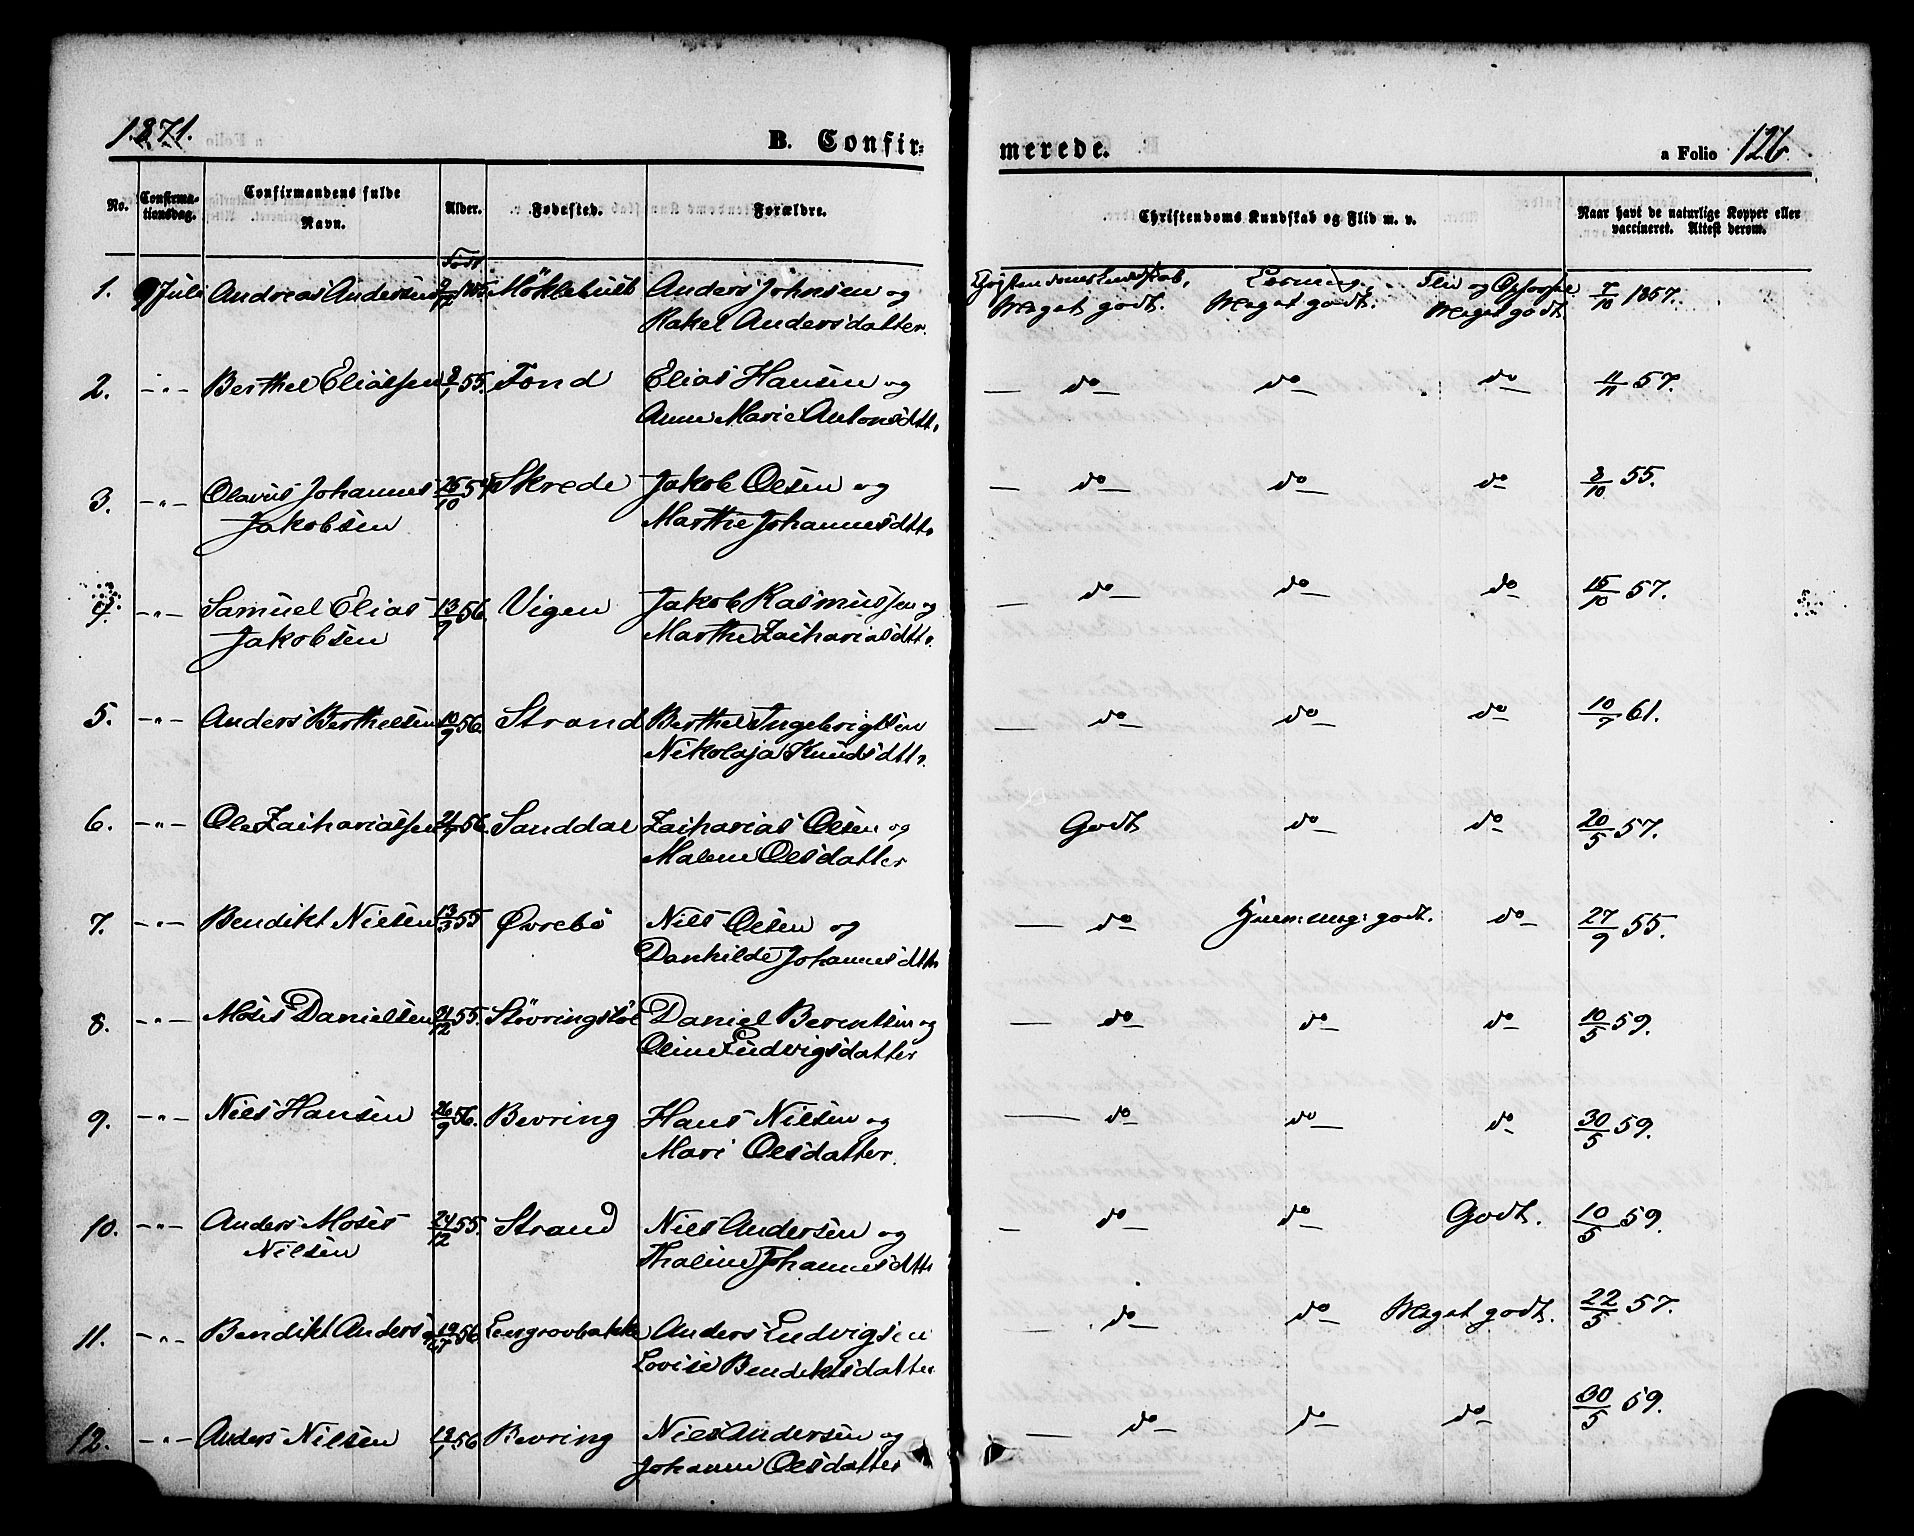 1871.
B. Confir-
merede.
a Folio 126.
No.
Confirma-
tionsdag.
Confirmandens fulde
Navn.
Alder.
Fødested.
Forældre.
Christendoms Kundskab og Flid m. v.
Naar havt de naturlige Kopper eller
vaccineret. Attest derom.
Født
1. 9 Juli Andreas Andersen Möklebust Anders Johnsen og
Rakel Andersdatter.
Meget godt. Meget godt. Meget godt 7/10 1857.
2. -"- Berthel Eliassen 8/1 55. Tond Elias Hansen og
Anne Marie Antonsdtt.
— do — do — do — 11/11 57.
3. -"- Olavus Johannes 25/10 54 Skrede Jakob Olsen og
Jakobsen Marthe Johannesdtt.
— do — do — do 8/10 55.
4. -"- Samuel Elias 13/9 56. Vigen Jakob Rasmussen og
Jakobsen Marthe Zachariasdtt.
— do do do 15/10 57.
5. -"- Anders Berthelsen 10/9 56. Strand Berthel Ingebrigtsen
Nikolaja Knudsdtt.
— do do do 10/7 61.
6. -"- Ole Zachariassen 56. Sanddal Zacharias Olsen og
Malene Olsdatter
Godt do do 20/5 57.
7. -"- Bendikt Nielsen 13/3 55 Øvrebö Niels Olsen og
Danhilde Johannesdtt.
— do godt. do 27/9 55.
8. -"- Moses Danielsen 21/12 55. Stövringstöl Daniel Berentsen og
Oline Ludvigsdatter
— do do do 10/5 59.
9. -"- Niels Hansen 26/9 56. Bevring Hans Nilsen og
Mari Olsdatter.
— do do do 30/5 59.
10. -"- Anders Moses 24/12 55. Strand Niels Andersen og
Nilsen Thaline Johannesdtt.
— do do Godt. 10/5 59.
11. -"- Bendikt Anders 19/7 56 Anders Ludvigsen
Lovise Bendiktsdatter
— do do Meget godt. 22/5 57.
12. -"- Anders Nilsen 12/1 56 Bevring Niels Andersen og
Johanne Olsdatter
— do do do 30/5 59.